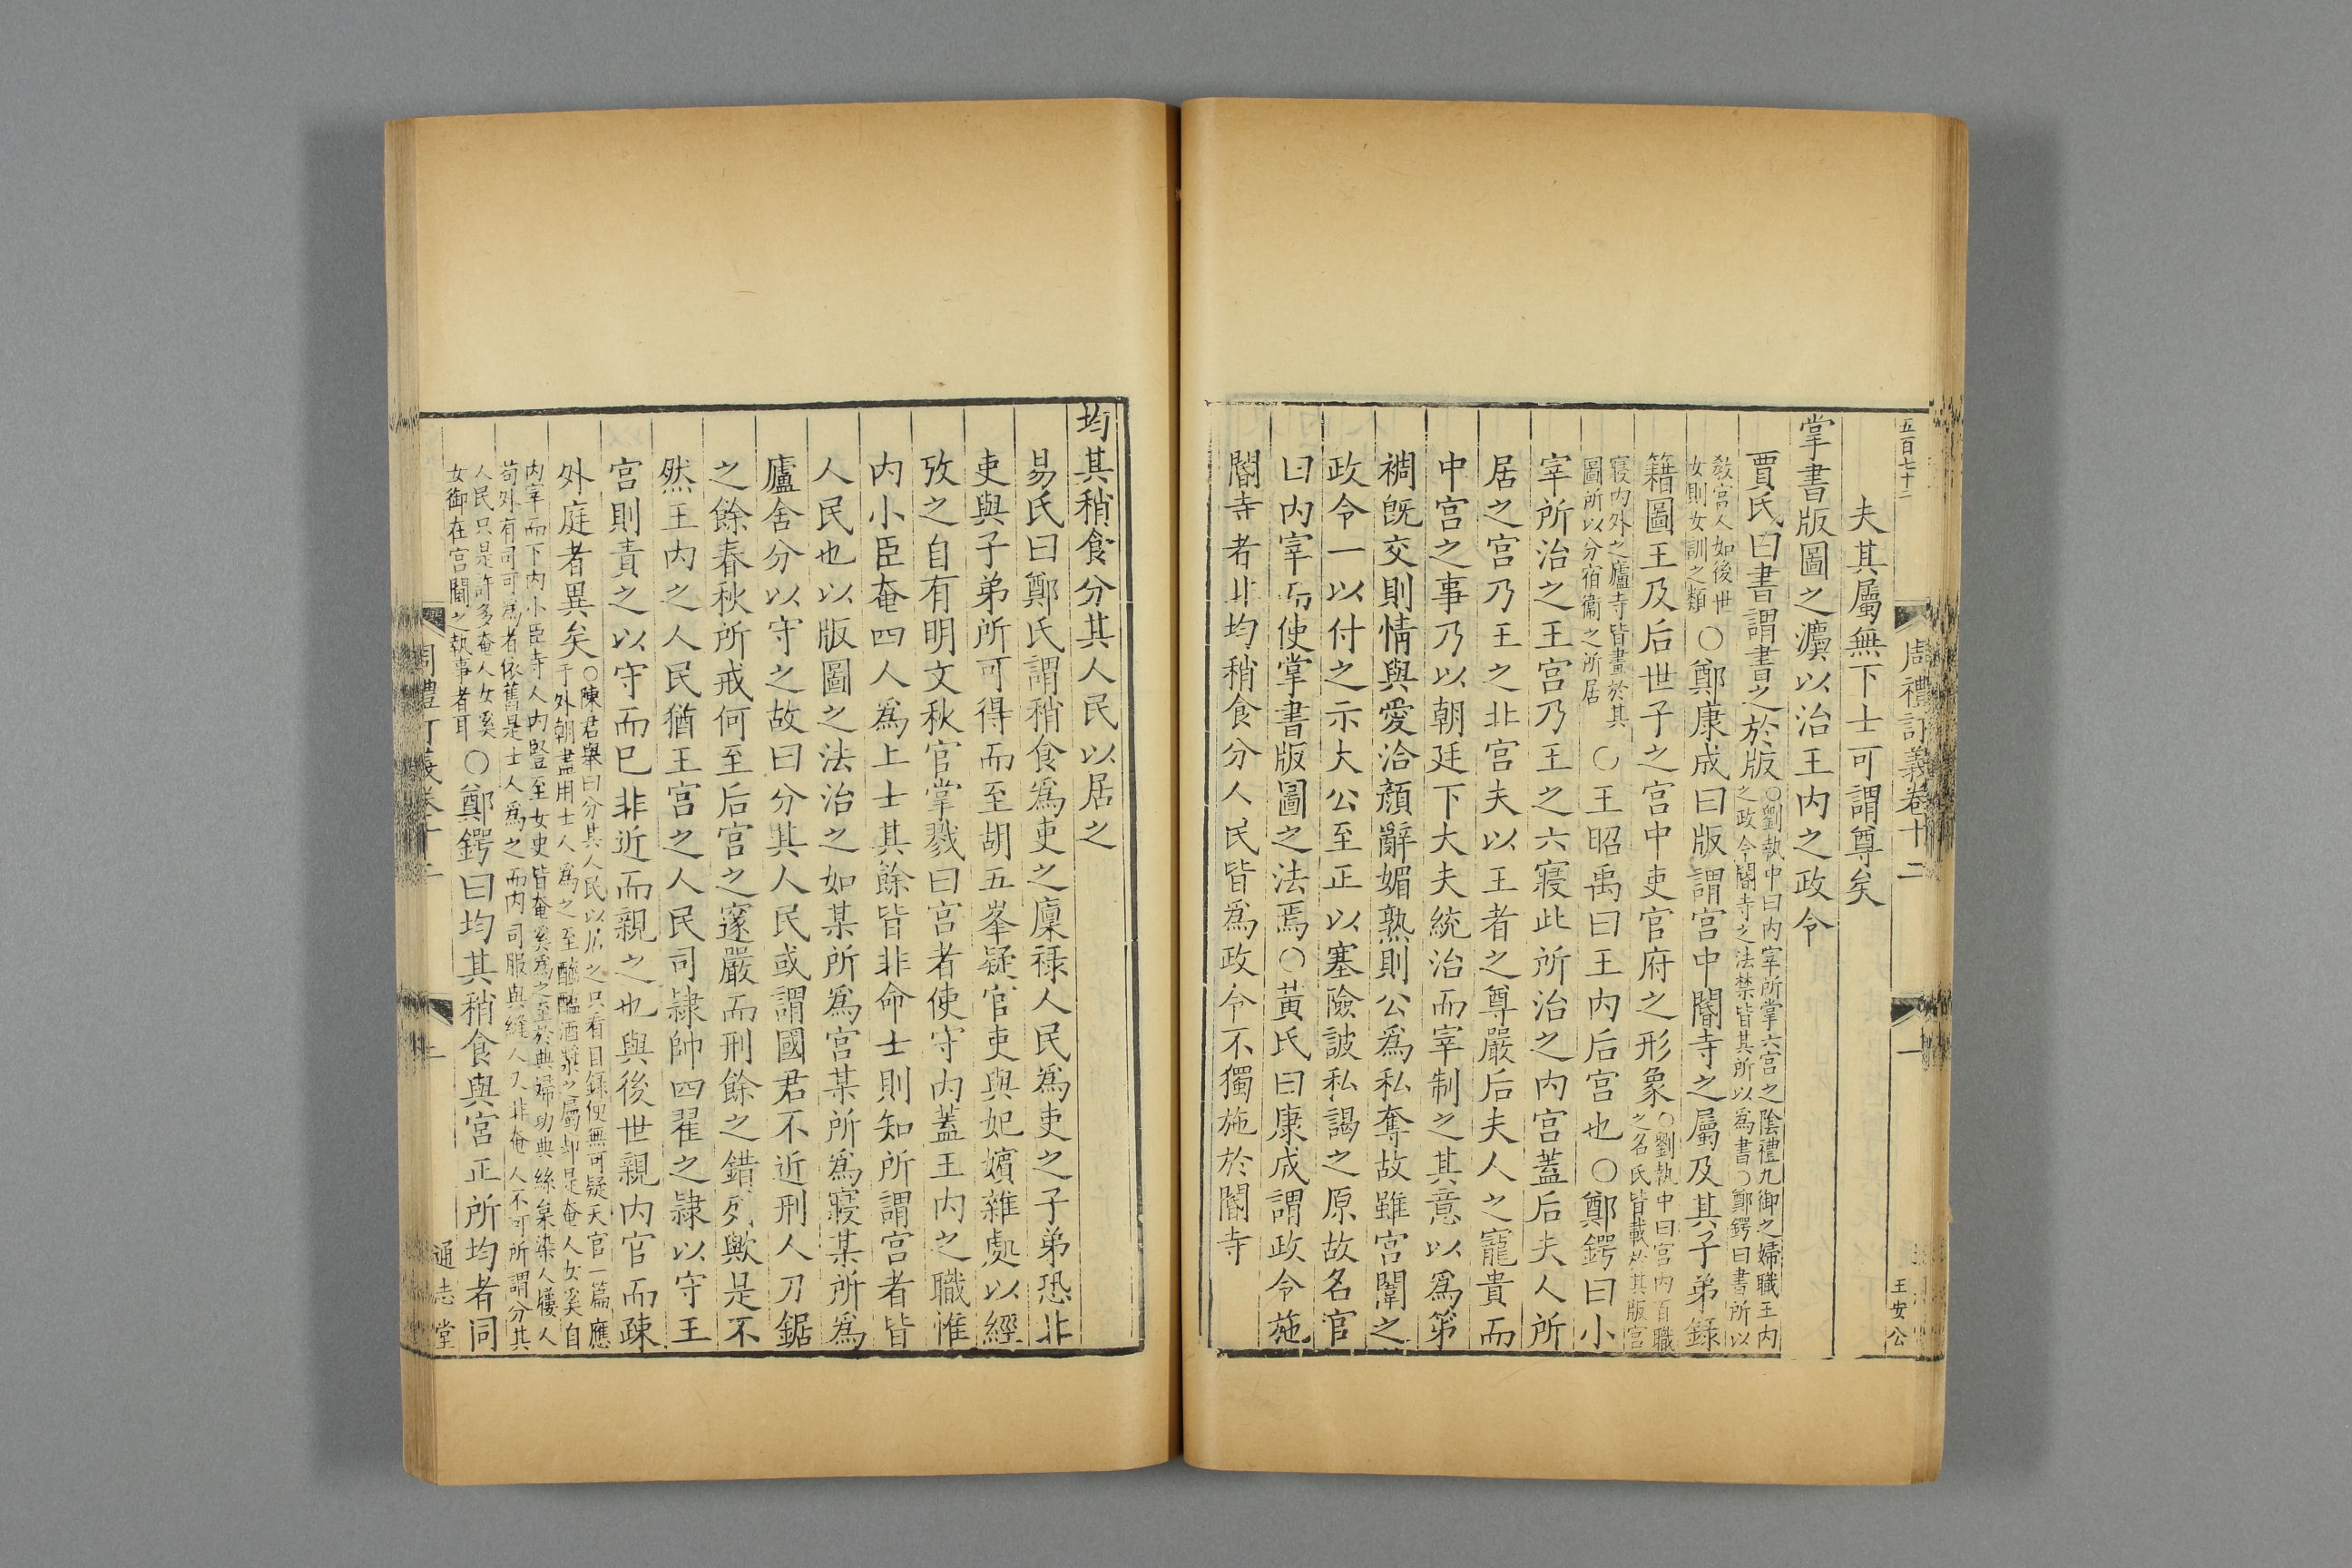 五百七十二
周禮訂義卷十二
一
王安公
夫其屬無下士可謂尊矣
掌書版圖之灋以治王内之政令
賈氏曰書謂書之於版○劉執中曰内宰所掌六宫之陰禮九御之婦職王内之政令閽寺之法禁皆其所以為書○鄭鍔曰書所以
教宫人如後世女則女訓之類○鄭康成曰版謂宫中閽寺之屬及其子弟錄
籍圖王及后世子之宫中吏官府之形象○劉執中曰宫内百職之名氏皆載於其版宫
寢内外之廬寺皆畫於其圖所以分宿衞之所居○王昭禹曰王内后宫也○鄭鍔曰小
宰所治之王宫乃王之六寢此所治之内宫蓋后夫人所
居之宫乃王之北宫夫以王者之尊嚴后夫人之寵貴而
中宫之事乃以朝廷下大夫統治而宰制之其意以為第
裯旣交則情與愛洽顔辭媚熟則公為私奪故雖宫闈之
政令一以付之示大公至正以塞險詖私謁之原故名官
曰内宰而使掌書版圖之法焉○黄氏曰康成謂政令施
閽寺者非均稍食分人民皆為政令不獨施於閽寺
均其稍食分其人民以居之
易氏曰鄭氏謂稍食為吏之廩禄人民為吏之子弟恐非
吏與子弟所可得而至胡五峯疑官吏與妃嬪雜處以經
攷之自有明文秋官掌戮曰宫者使守内蓋王内之職惟
内小臣奄四人為上士其餘皆非命士則知所謂宫者皆
人民也以版圖之法治之如某所為宫某所為寢某所為
廬舍分以守之故曰分其人民或謂國君不近刑人刀鋸
之餘春秋所戒何至后宫之邃嚴而刑餘之錯列歟是不
然王内之人民猶王宫之人民司隷帥四翟之隷以守王
宫則責之以守而已非近而親之也與後世親内官而疎
外庭者異矣○陳君舉曰分其人民以居之只看目錄便無可疑天官一篇應于外朝盡用士人為之至醯醢酒漿之屬却是奄人女奚自
内宰而下内小臣寺人内豎至女史皆奄奚為之至於典婦功典絲枲染人屨人苟外有司可為者依舊是士人為之而内司服與縫人又非奄人不可所謂分其
人民只是許多奄人女奚女御在宫闈之執事者耳○鄭鍔曰均其稍食與宫正所均者同
周禮訂義卷十二
通志堂